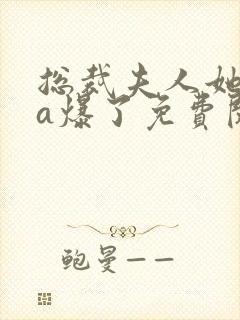 总裁夫人她
a爆了免费阅
鲍曼——